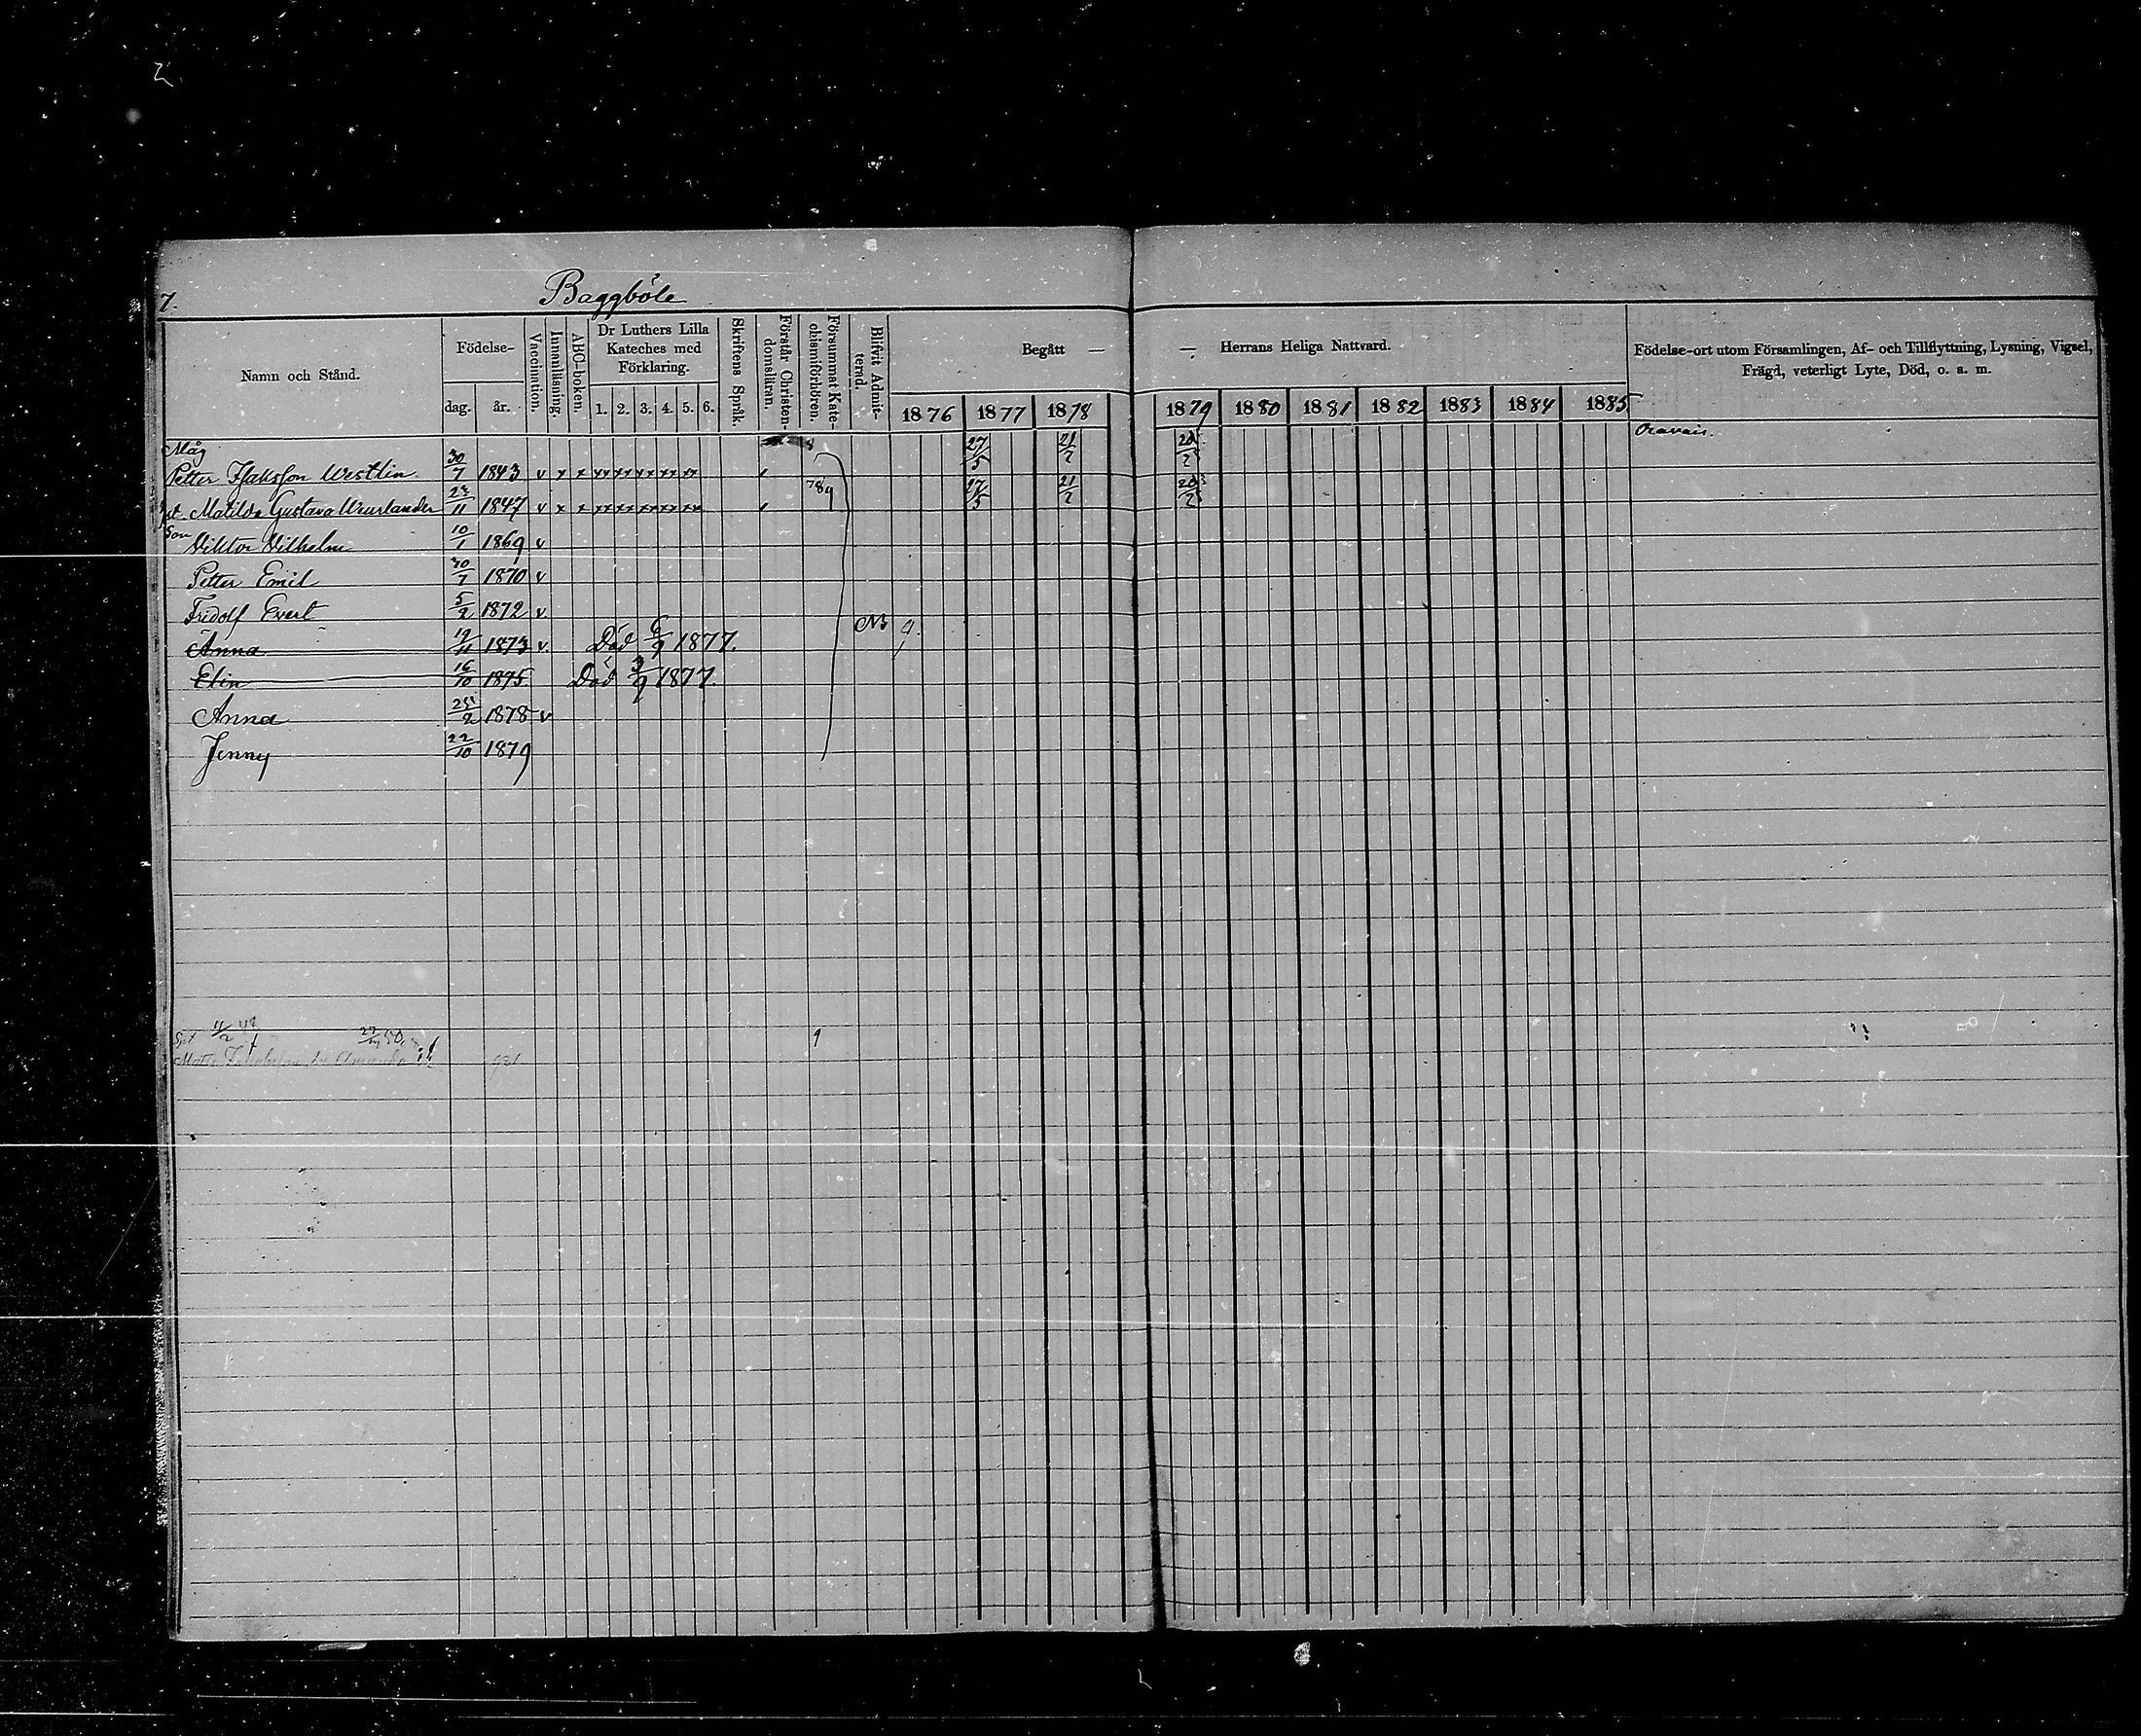 7.
Baggböle
Namn och Stånd.
Födelse-
dag. år.
Vaccination.
Innanläsning.
ABC-boken.
Dr Luthers Lilla
Kateches med
Förklaring.
1. 2. 3. 4. 5. 6.
Skriftens Språk.
Förstår Christen-
domsläran.
Försummat Kate-
chismiförhören.
Blifvit Admit-
terad.
Begått —
— Herrans Heliga Nattvard.
1876 1877 1878 1879 1880 1881 1882 1883 1884 1885
Födelse-ort utom Församlingen, Af- och Tillflyttning, Lysning, Vigsel,
Frägd, veterligt Lyte, Död, o. a. m.
Måg 27/5 21/2 Oravais.
Petter Isaksson Westlin 30/7 1843 v x x xx xx xx xx xx
Matilda Gustava 11 1847 v x x xx xx xx xx xx 789 27/5 21/2
Son
Viktor Vilhelm 10/1 1869 v
Petter Emil 30/7 1870 v
Fridolf Evert 5/2 1872 v
Anna 1873 v. Död 6/9 1877.
Elin 16/10 1875 Död 3/9 1877.
Anna 25/2 1878 v
Jenny 22/10 1879